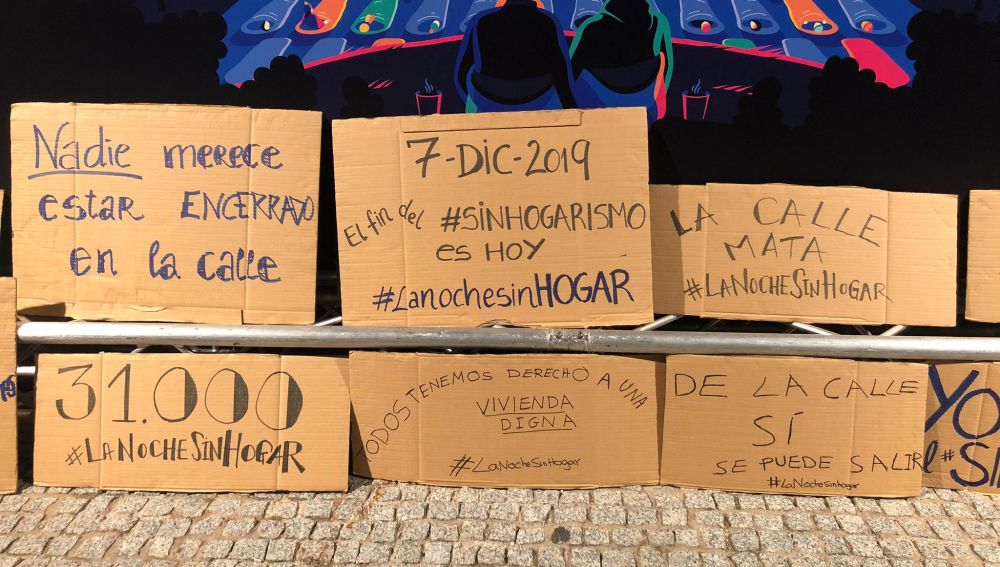 Nadie merece
estar ENCERRADO
en la calle
7-DIC-2019
El fin del #SINHOGARISMO
es HOY
#LanochesinHOGAR
LA CALLE
MATA
#LANOCHESINHOGAR
31.000
#LANOCHESINHOGAR
TODOS TENEMOS DERECHO A UNA
VIVIENDA
DIGNA
#LaNocheSinHogar
DE LA CALLE
SÍ
SE PUEDE SALIR
#LaNocheSinhogar
YO